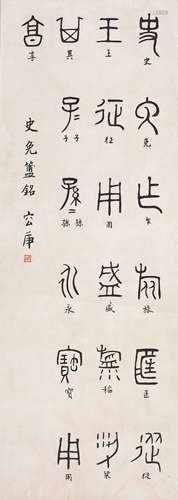 史免乍旅匡從
王征用盛稻粱
其子子孫孫永寶用
享
史免簠銘